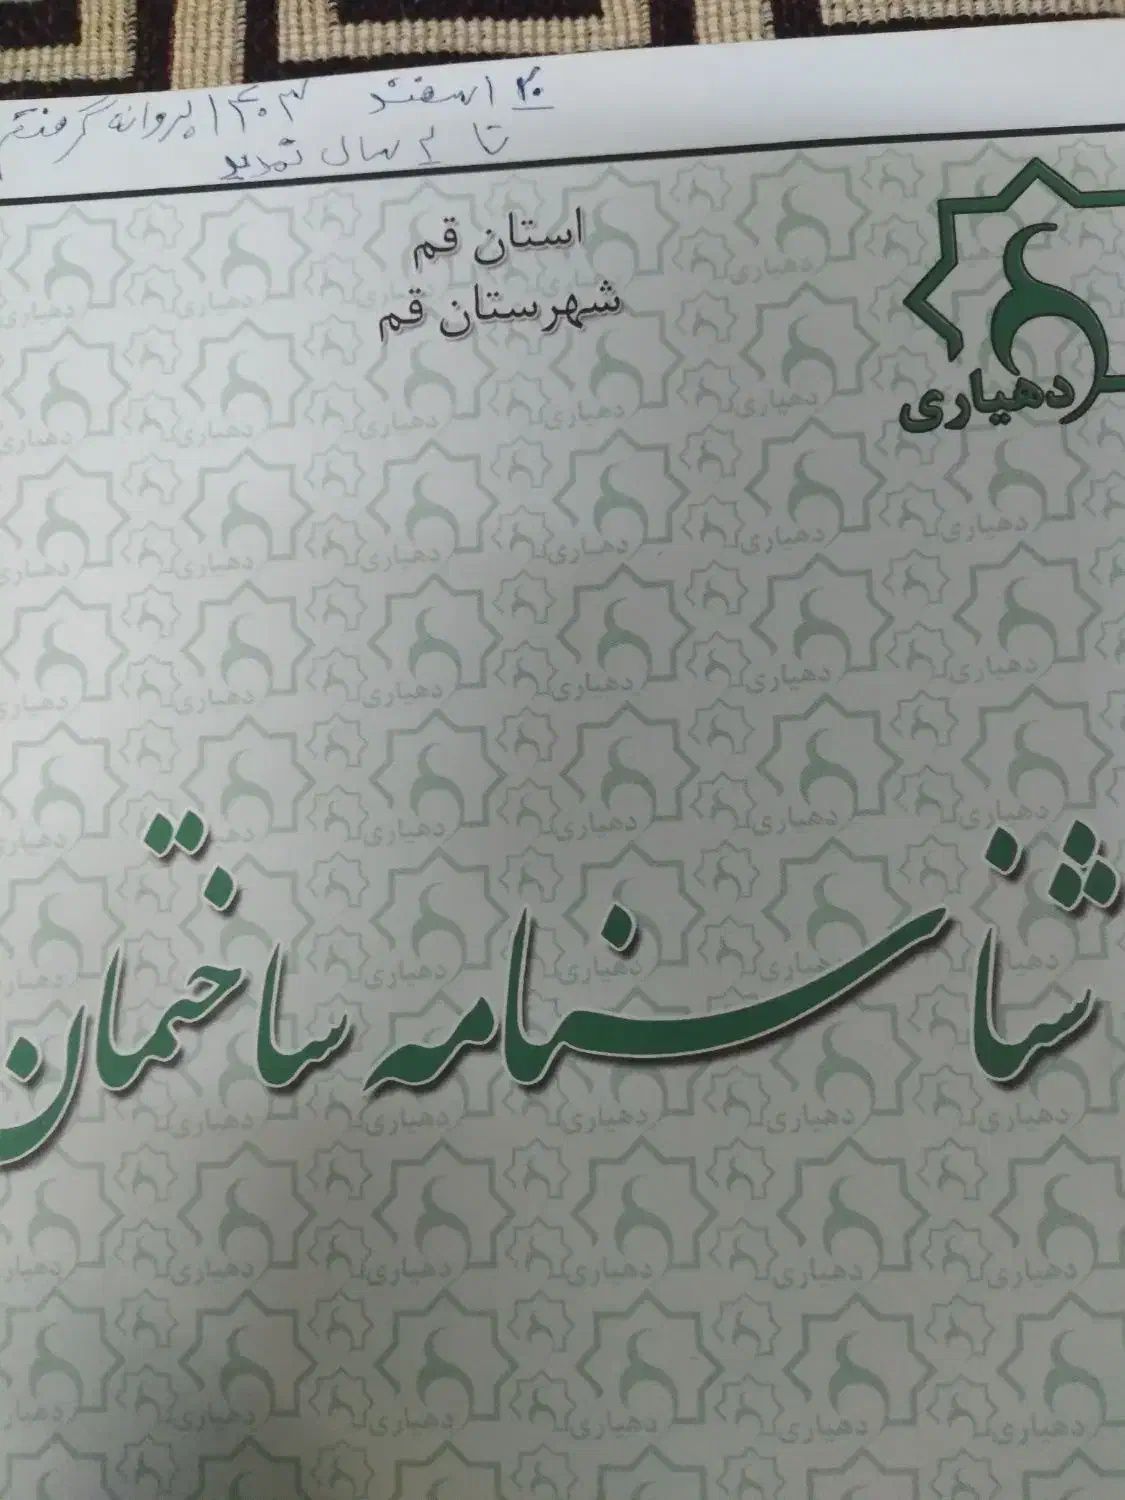 ۲۰ اسفند ۱۴۰۳ پروانه گرفتم
تا ۲ سال تمدید
استان قم
شهرستان قم
دهیاری
شناسنامه ساختمان